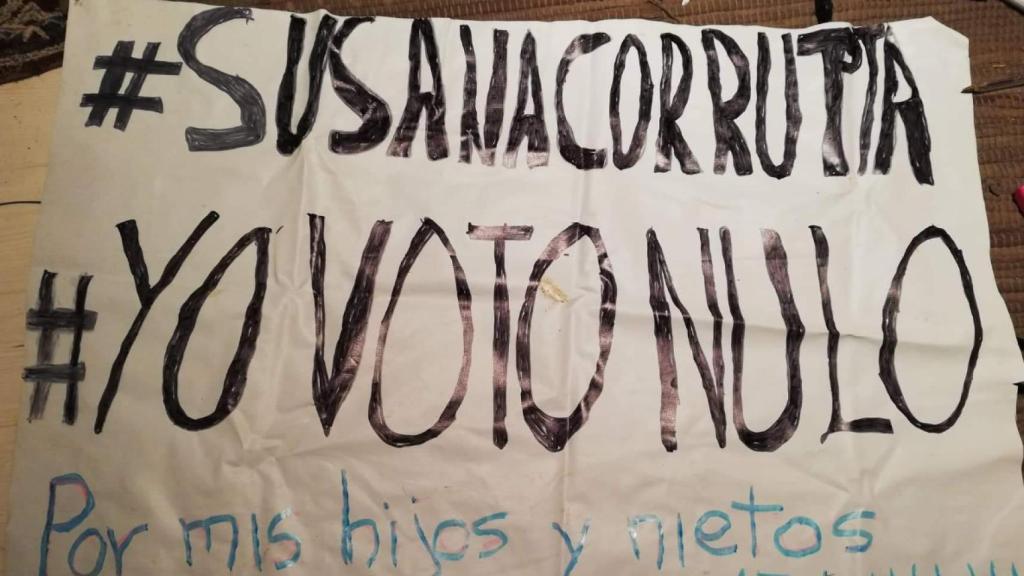 #SUSANACORRUPTA
#YO VOTO NULO
Por mis hijos y nietos